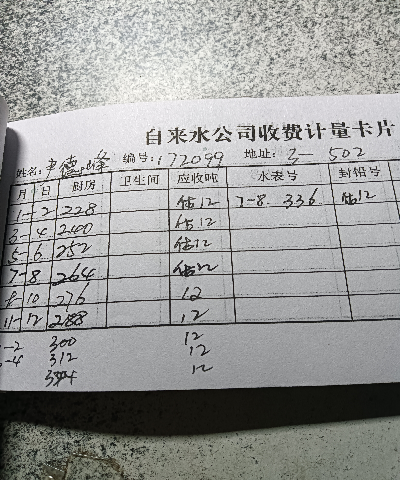 自来水公司收费计量卡片
姓名: 尹德峰 编号: 172099 地址: 3 502
月 日 厨房 卫生间 应收吨 水表号 封铅号
1-2 228 估12 7-8 336 估12
3-4 240 估12
5-6 252 估12
7-8 264 估12
10 276 12
11-12 288 12
-2 300 12
-4 312 12
12